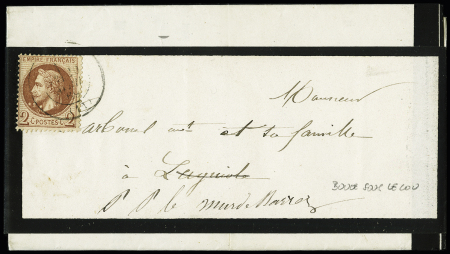 EMPIRE FRANÇAIS
2 C POSTES C 2
Monsieur
et sa famille
à Laguiole
P P le mur de Barrez
BOUCLE SOUS LE COU